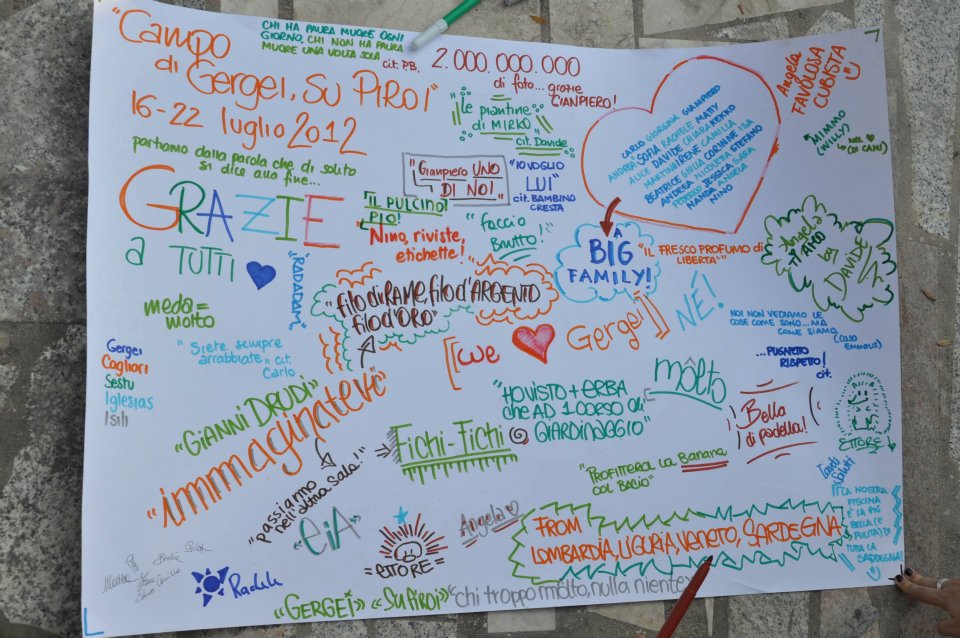 "Campo
di Gergei, SU PIROI"
16-22 luglio 2012
CHI HA PAURA MUORE OGNI
GIORNO, CHI NON HA PAURA
MUORE UNA VOLTA SOLA
cit. P.B.
2.000.000.000
di foto... grazie
GIANPIERO!
"Le piantine
di MIRKO"
cit. Davide
Angela
FAVOLOSA
CUBISTA
MIMMO
(WILLY)
CARLO GIORGINA GIANPIERO
ANDREA SOFIA RACHELE MATTY
ALICE DAVIDE CHIARA KEKKO
MARTINA IRENE CAMILLA ISA
BEATRICE GIULIA CORINNE STEFANO
ANDREA NICOLETTA SARA
FEDERICO JESSICA ANGELA
NANDA
NINO
partiamo dalla parola che di solito
si dice alla fine...
GRAZIE
a TUTTI
"Gianpiero UNO
DI NOI"
"IO VOGLIO
LUI"
cit. BAMBINO
CRESTA
"IL PULCINO
PIO!
Nino, riviste,
etichette!
"faccio
Brutto!"
A
BIG
FAMILY!
"IL FRESCO PROFUMO di
LIBERTÀ"
Angela
TATTO
by
DAVIDE
"RADADAM"
meda =
molto
"filo di RAME, filo d'ARGENTO
filo d'ORO"
[[We Gergei]]
NÉ!
NOI NON VEDIAMO LE
COSE COME SONO... MA
COME SIAMO
(CASO
EMMAUS)
...PUGNETTO
RISPETTO!
cit.
Gergei
Cagliari
Sestu
Iglesias
Isili
"Siete sempre
arrabbiate" cit.
Carlo
"GIANNI DRUDI"
"immaginatevi"
"HO VISTO + ERBA
che AD 1 CORSO di
GIARDINAGGIO"
MÔLTO
Bella
di padella!
ETTORE
Fichi-Fichi
"passiamo
nell'altra sala!"
"PROFITTEROL LA Banana
COL BACIO"
Tanti
Saluti
"LA NOSTRA
PISCINA
È LA PIÙ
BELLA (E
PULITA) DI
TUTTA LA
SARDEGNA!
"EIA"
= ETTORE =
Angela
FROM
LOMBARDIA, LIGURIA, VENETO, SARDEGNA
Camilla
"GERGEI" "SU PIROI" "chi troppo môlto, nulla niente"